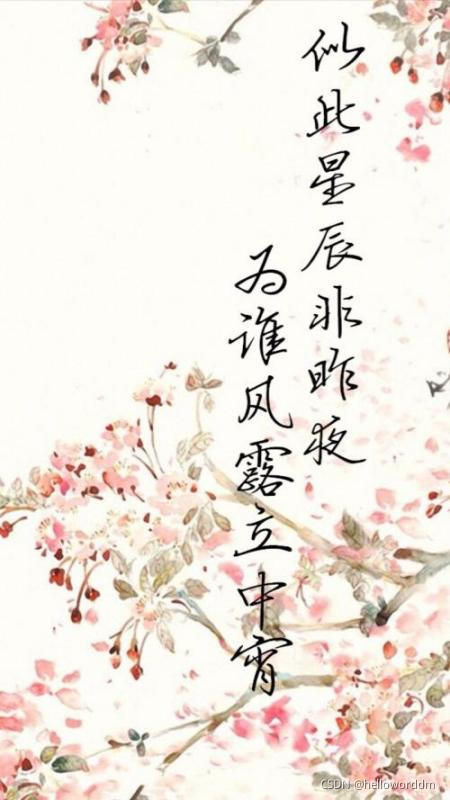 似此星辰非昨夜
为谁风露立中宵
CSDN @helloworddm